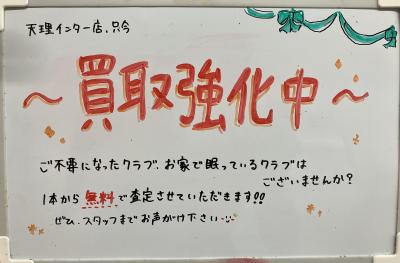 天理インター店、只今
～買取強化中～
ご不要になったクラブ、お家で眠っているクラブは
ございませんか?
1本から無料で査定させていただきます!!
ぜひ、スタッフまでお声がけ下さい